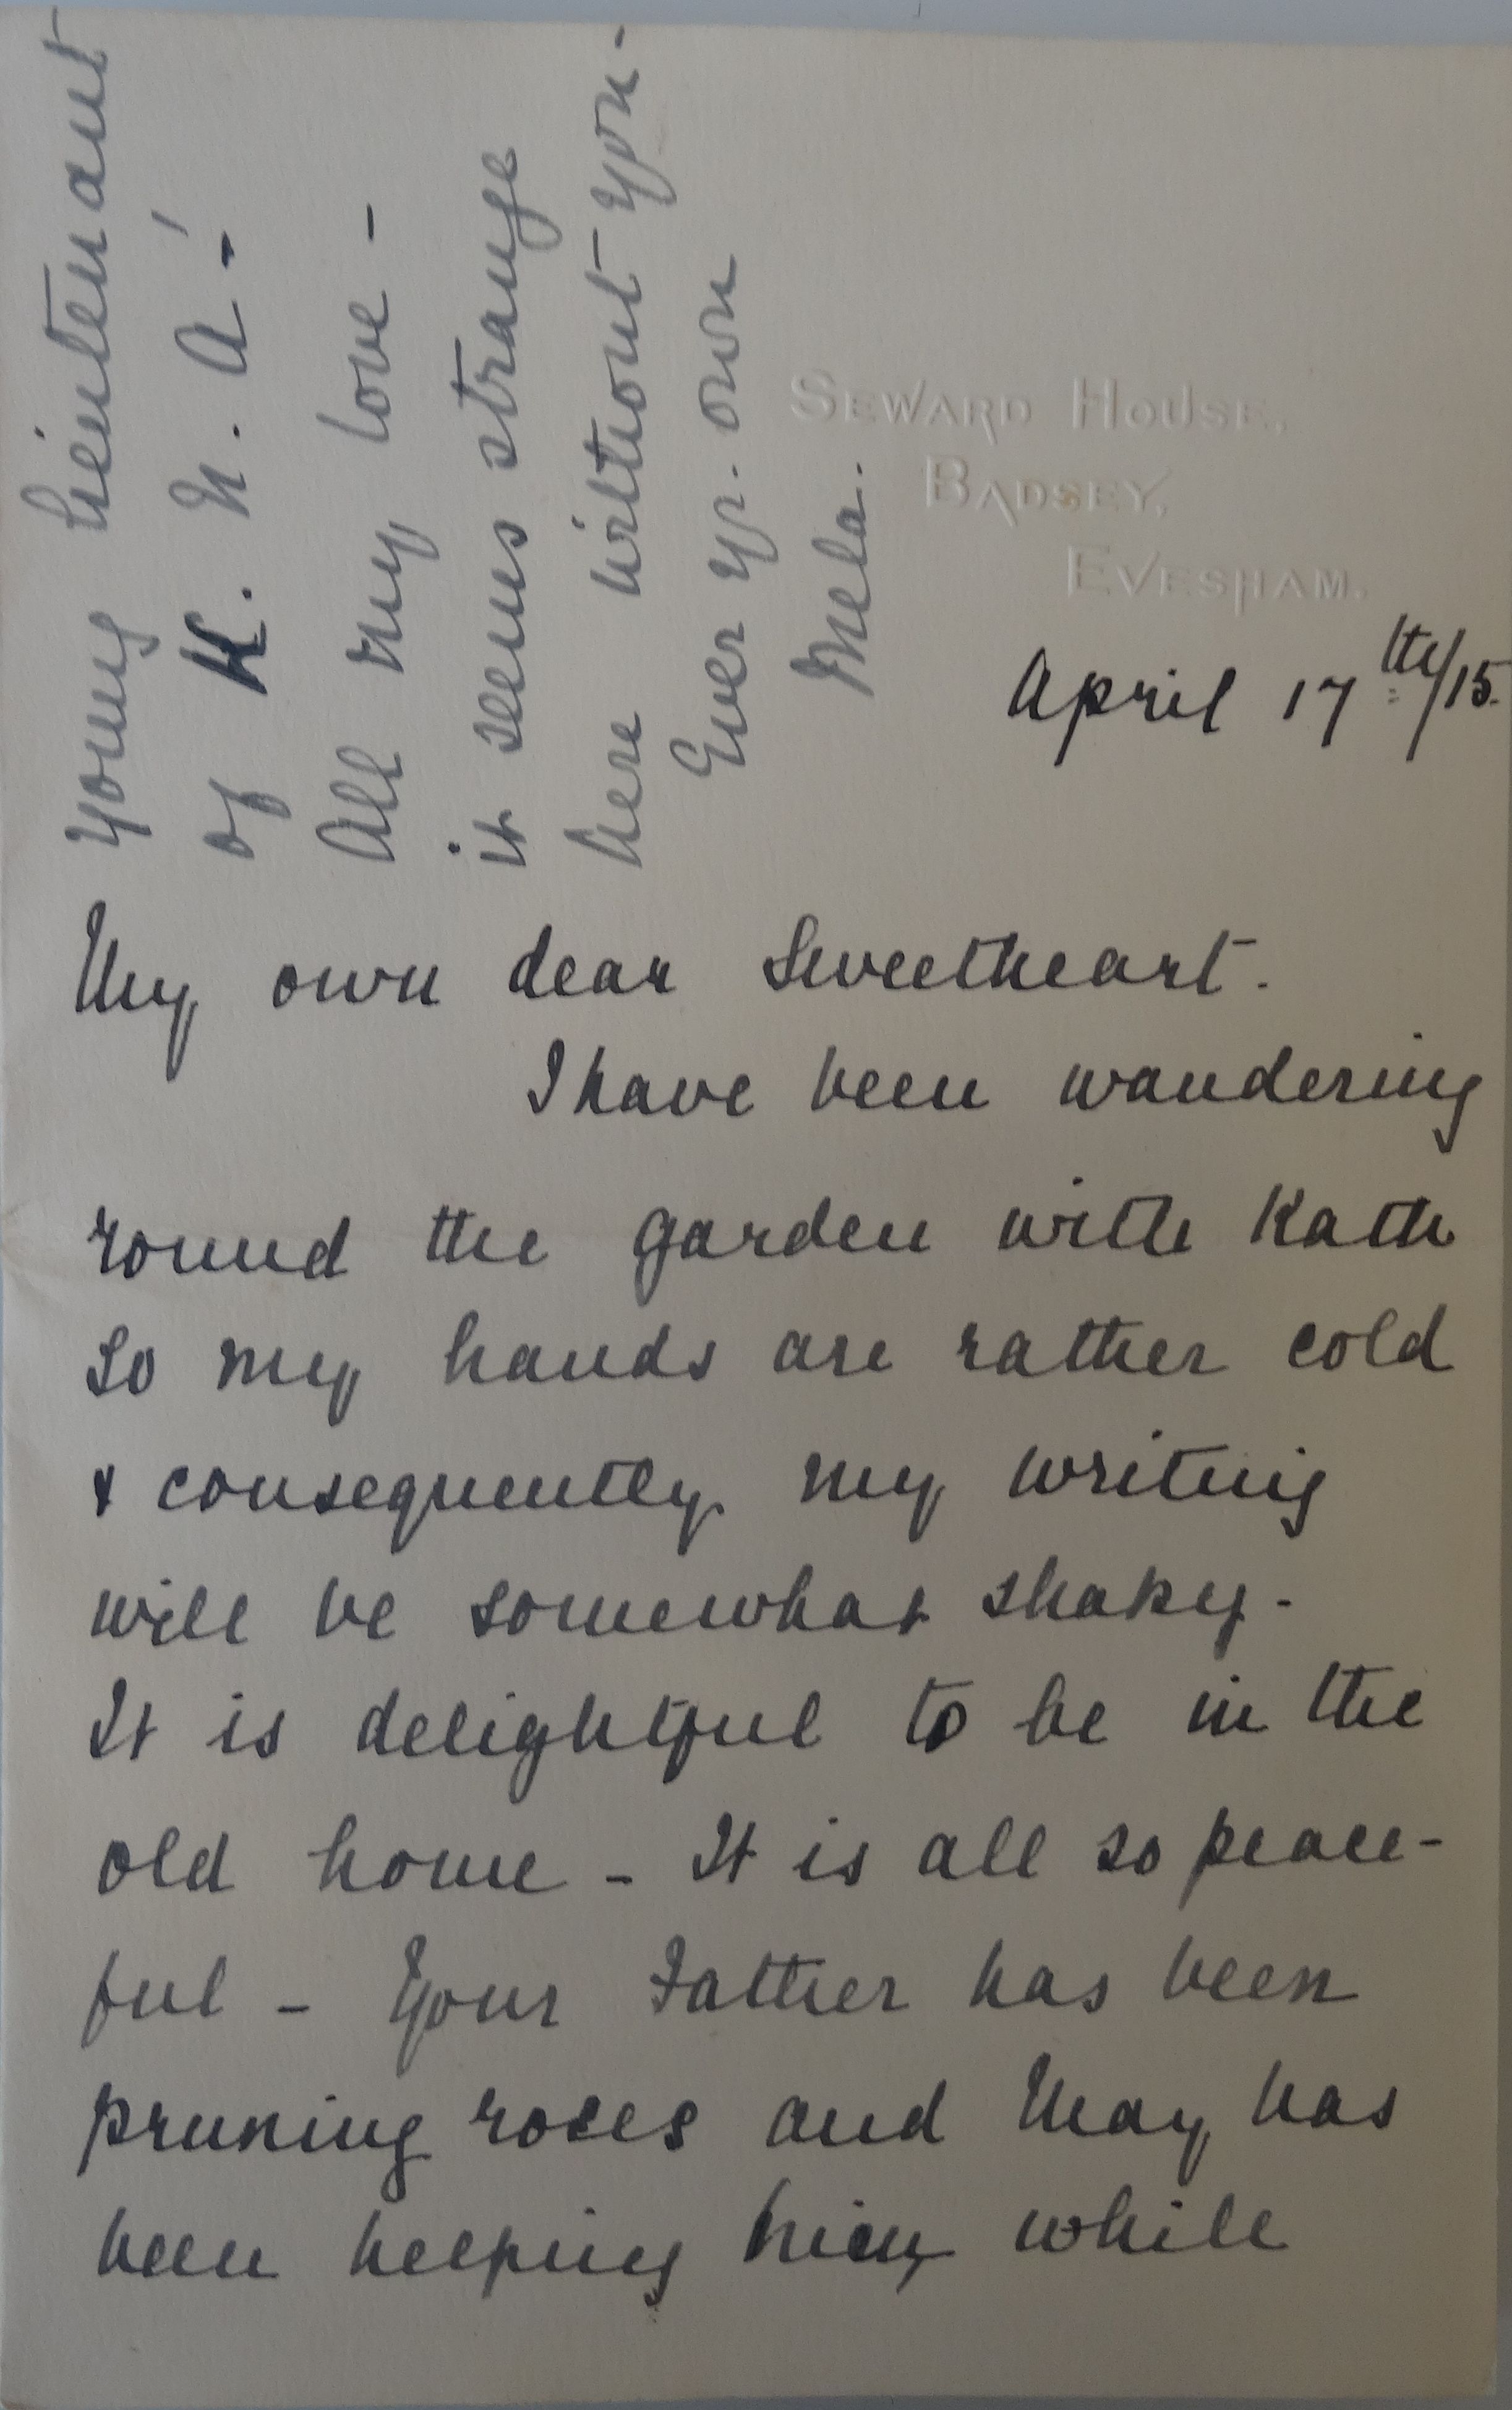 Seward House,
Badsey,
Evesham.
April 17th/15.
My own dear Sweetheart.
I have been wandering
round the garden with Kath
so my hands are rather cold
& consequently my writing
will be somewhat shaky-
It is delightful to be in the
old home - It is all so peace-
ful - Your Father has been
pruning roses and May has
been helping him while
young Lieutenant
of K. N. A!
All my love -
it seems strange
here without you-
Ever yr. own
Mela.